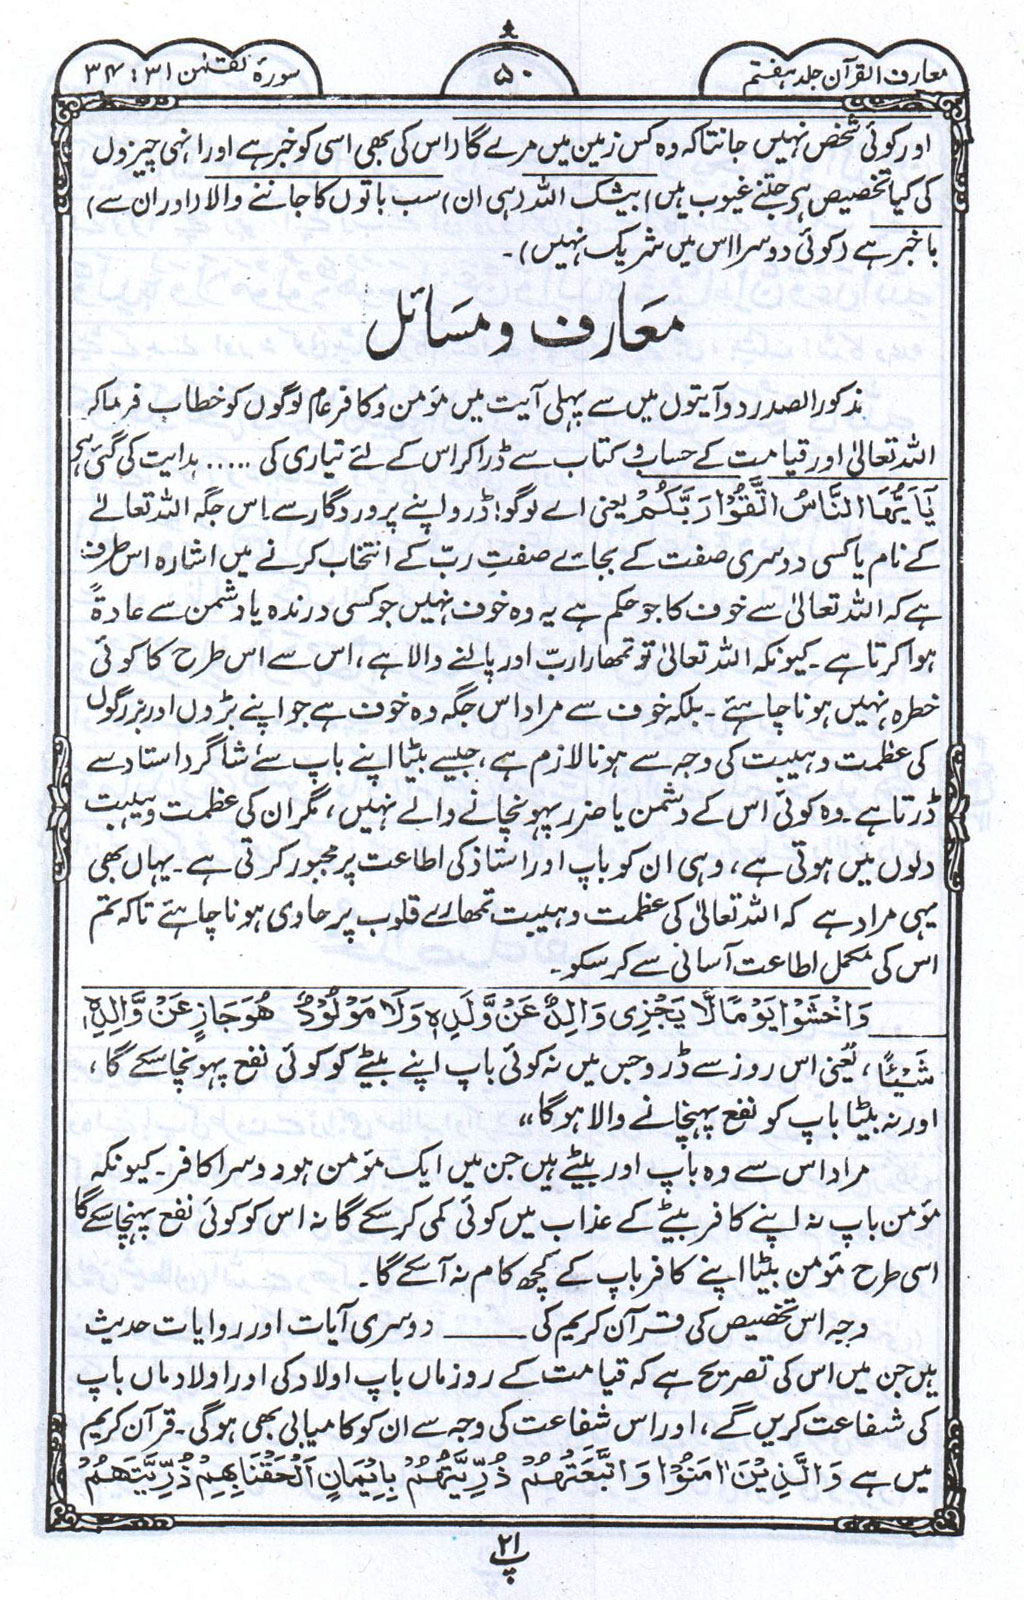 معارف القرآن جلد ہفتم
۵۰
سورۂ لقمٰن ۳۱ : ۳۴
اور کوئی شخص نہیں جانتا کہ وہ کس زمین میں مرے گا (اس کی بھی اسی کو خبر ہے اور انہی چیزوں
کی کیا تخصیص ہے جتنے غیوب ہیں) بیشک اللہ (ہی ان) سب باتوں کا جاننے والا (اور ان سے)
باخبر ہے (کوئی دوسرا اس میں شریک نہیں)۔
معارف و مسائل
مذکور الصدر دو آیتوں میں سے پہلی آیت میں مؤمن و کافر عام لوگوں کو خطاب فرما کر
اللہ تعالیٰ اور قیامت کے حساب و کتاب سے ڈرا کر اس کے لئے تیاری کی ..... ہدایت کی گئی ہے
يٰٓاَيُّهَا النَّاسُ اتَّقُوْا رَبَّكُمْ یعنی اے لوگو! ڈرو اپنے پروردگار سے۔ اس جگہ اللہ تعالےٰ
کے نام یا کسی دوسری صفت کے بجائے صفتِ ربّ کے انتخاب کرنے میں اشارہ اس طرف
ہے کہ اللہ تعالیٰ سے خوف کا جو حکم ہے یہ وہ خوف نہیں جو کسی درندہ یا دشمن سے عادۃً
ہوا کرتا ہے۔ کیونکہ اللہ تعالیٰ تو تمھارا ربّ اور پالنے والا ہے، اس سے اس طرح کا کوئی
خطرہ نہیں ہونا چاہئے۔ بلکہ خوف سے مراد اس جگہ وہ خوف ہے جو اپنے بڑوں اور بزرگوں
کی عظمت و ہیبت کی وجہ سے ہونا لازم ہے، جیسے بیٹا اپنے باپ سے شاگرد استاد سے
ڈرتا ہے۔ وہ کوئی اس کے دشمن یا ضرر پہونچانے والے نہیں، مگر ان کی عظمت و ہیبت
دلوں میں ہوتی ہے، وہی ان کو باپ اور استاذ کی اطاعت پر مجبور کرتی ہے۔ یہاں بھی
یہی مراد ہے کہ اللہ تعالیٰ کی عظمت و ہیبت تمھارے قلوب پر حاوی ہونا چاہئے تاکہ تم
اس کی مکمل اطاعت آسانی سے کر سکو۔
وَاخْشَوْا يَوْمًا لَّا يَجْزِى وَالِدٌ عَنْ وَّلَدِهٖ وَلَا مَوْلُوْدٌ هُوَ جَازٍ عَنْ وَّالِدِهٖ
شَيْئًا، یعنی اس روز سے ڈرو جس میں نہ کوئی باپ اپنے بیٹے کو کوئی نفع پہونچا سکے گا،
اور نہ بیٹا باپ کو نفع پہنچانے والا ہوگا،،
مراد اس سے وہ باپ اور بیٹے ہیں جن میں ایک مؤمن ہو دوسرا کافر۔ کیونکہ
مؤمن باپ نہ اپنے کافر بیٹے کے عذاب میں کوئی کمی کر سکے گا نہ اس کو کوئی نفع پہنچا سکے گا
اسی طرح مؤمن بیٹا اپنے کافر باپ کے کچھ کام نہ آسکے گا۔
وجہ اس تخصیص کی قرآن کریم کی ــــــ دوسری آیات اور روایات حدیث
ہیں جن میں اس کی تصریح ہے کہ قیامت کے روز ماں باپ اولاد کی اور اولاد ماں باپ
کی شفاعت کریں گے، اور اس شفاعت کی وجہ سے ان کو کامیابی بھی ہوگی۔ قرآن کریم
میں ہے وَالَّذِيْنَ اٰمَنُوْا وَاتَّبَعَتْهُمْ ذُرِّيَّتُهُمْ بِاِيْمَانٍ اَلْحَقْنَا بِهِمْ ذُرِّيَّتَهُمْ
۲۱
پ